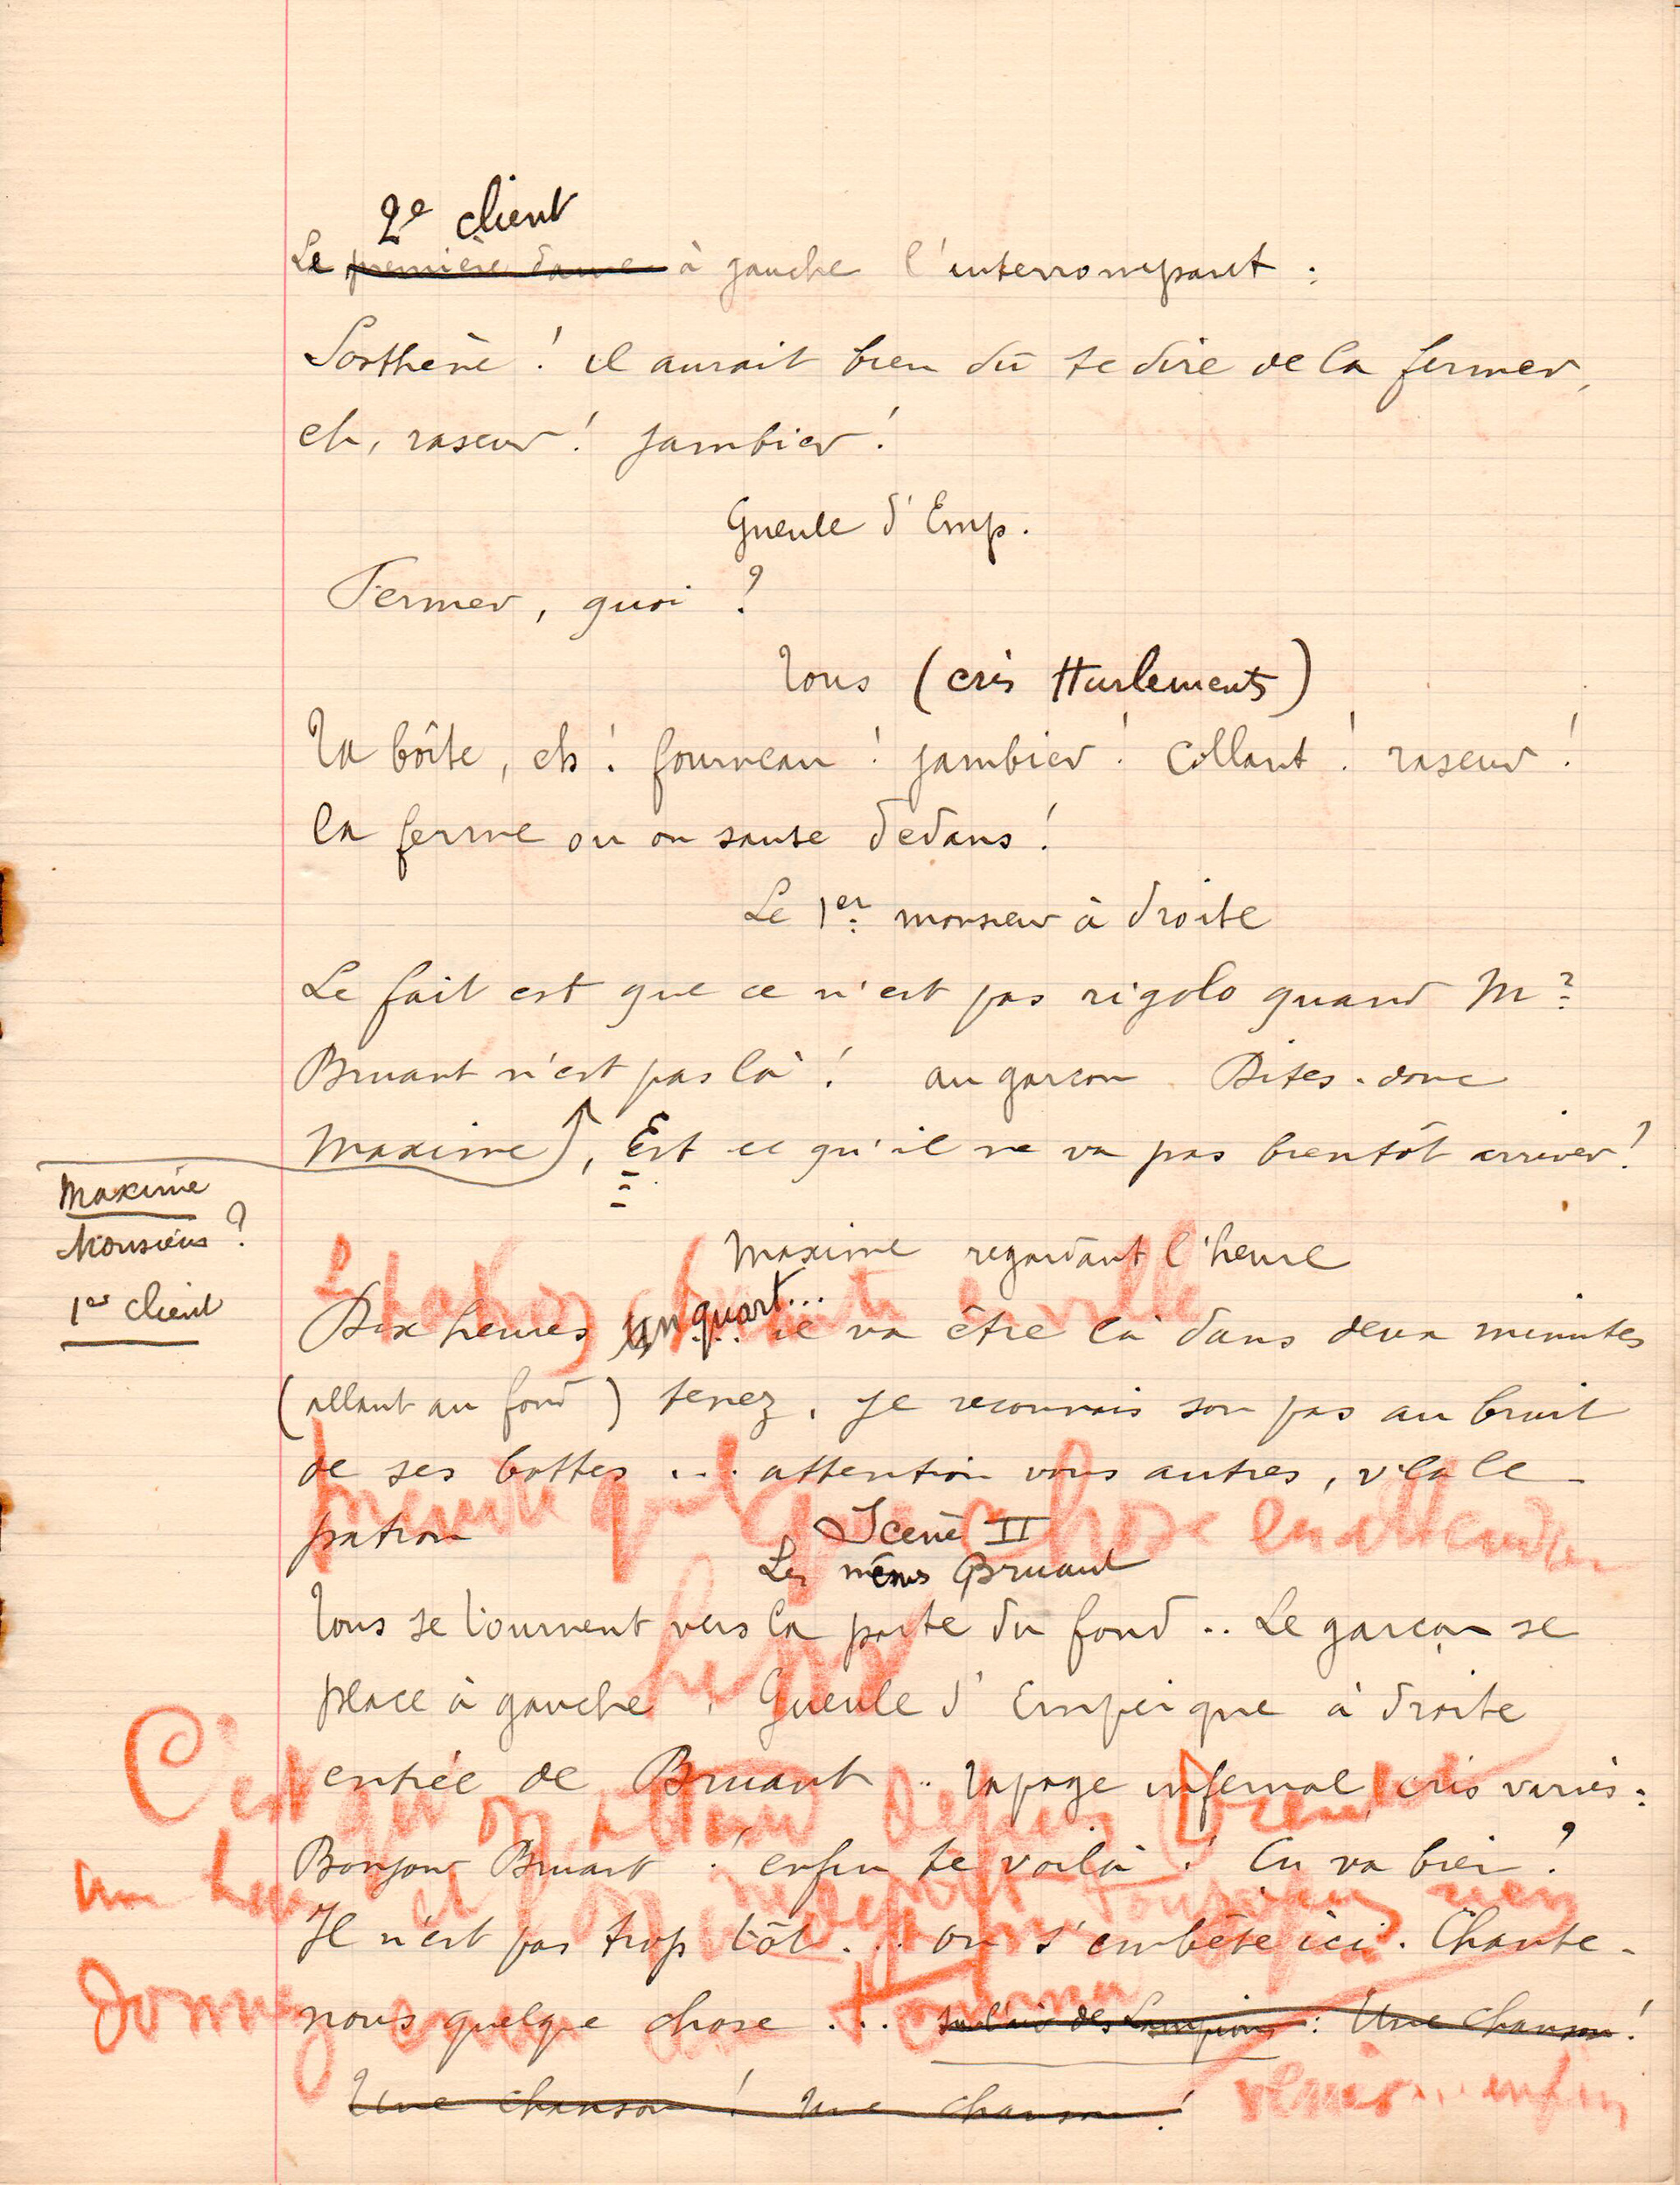 2e client
Le première dame à gauche l'interrompant :
Sosthène ! il aurait bien dû te dire de la fermer,
eh, raseur ! jambier !
Gueule d'Emp.
Fermer, quoi ?
Tous (cris Hurlements)
Ta boîte, eh ! fourneau ! jambier ! Collant ! raseur !
la ferme ou on saute dedans !
Le 1er monsieur à droite
Le fait est que ce n'est pas rigolo quand Mr
Bruant n'est pas là ! au garçon Dites-donc
Maxime, Est ce qu'il ne va pas bientôt arriver ?
Maxime
Monsieur ?
1er client
Maxime regardant l'heure
Dix heures un quart... il va être là dans deux minutes
(allant au fond) tenez, je reconnais son pas au bruit
de ses bottes ... attention vous autres, v'la le
patron
Scène II
Les mêmes Bruant
Tous se tournent vers la porte du fond .. Le garçon se
place à gauche, Gueule d'Empeigne à droite
entrée de Bruant .. tapage infernal, cris variés :
Bonjour Bruant ! enfin te voilà ! Ça va bien ?
Il n'est pas trop tôt ... on s'embête ici. Chante-
nous quelque chose ... sur l'air des Lampions : Une chanson !
Une chanson ! Une chanson !
prendre quelque chose en attendant
C'est qu'on attend depuis
un
Donnez
enfin